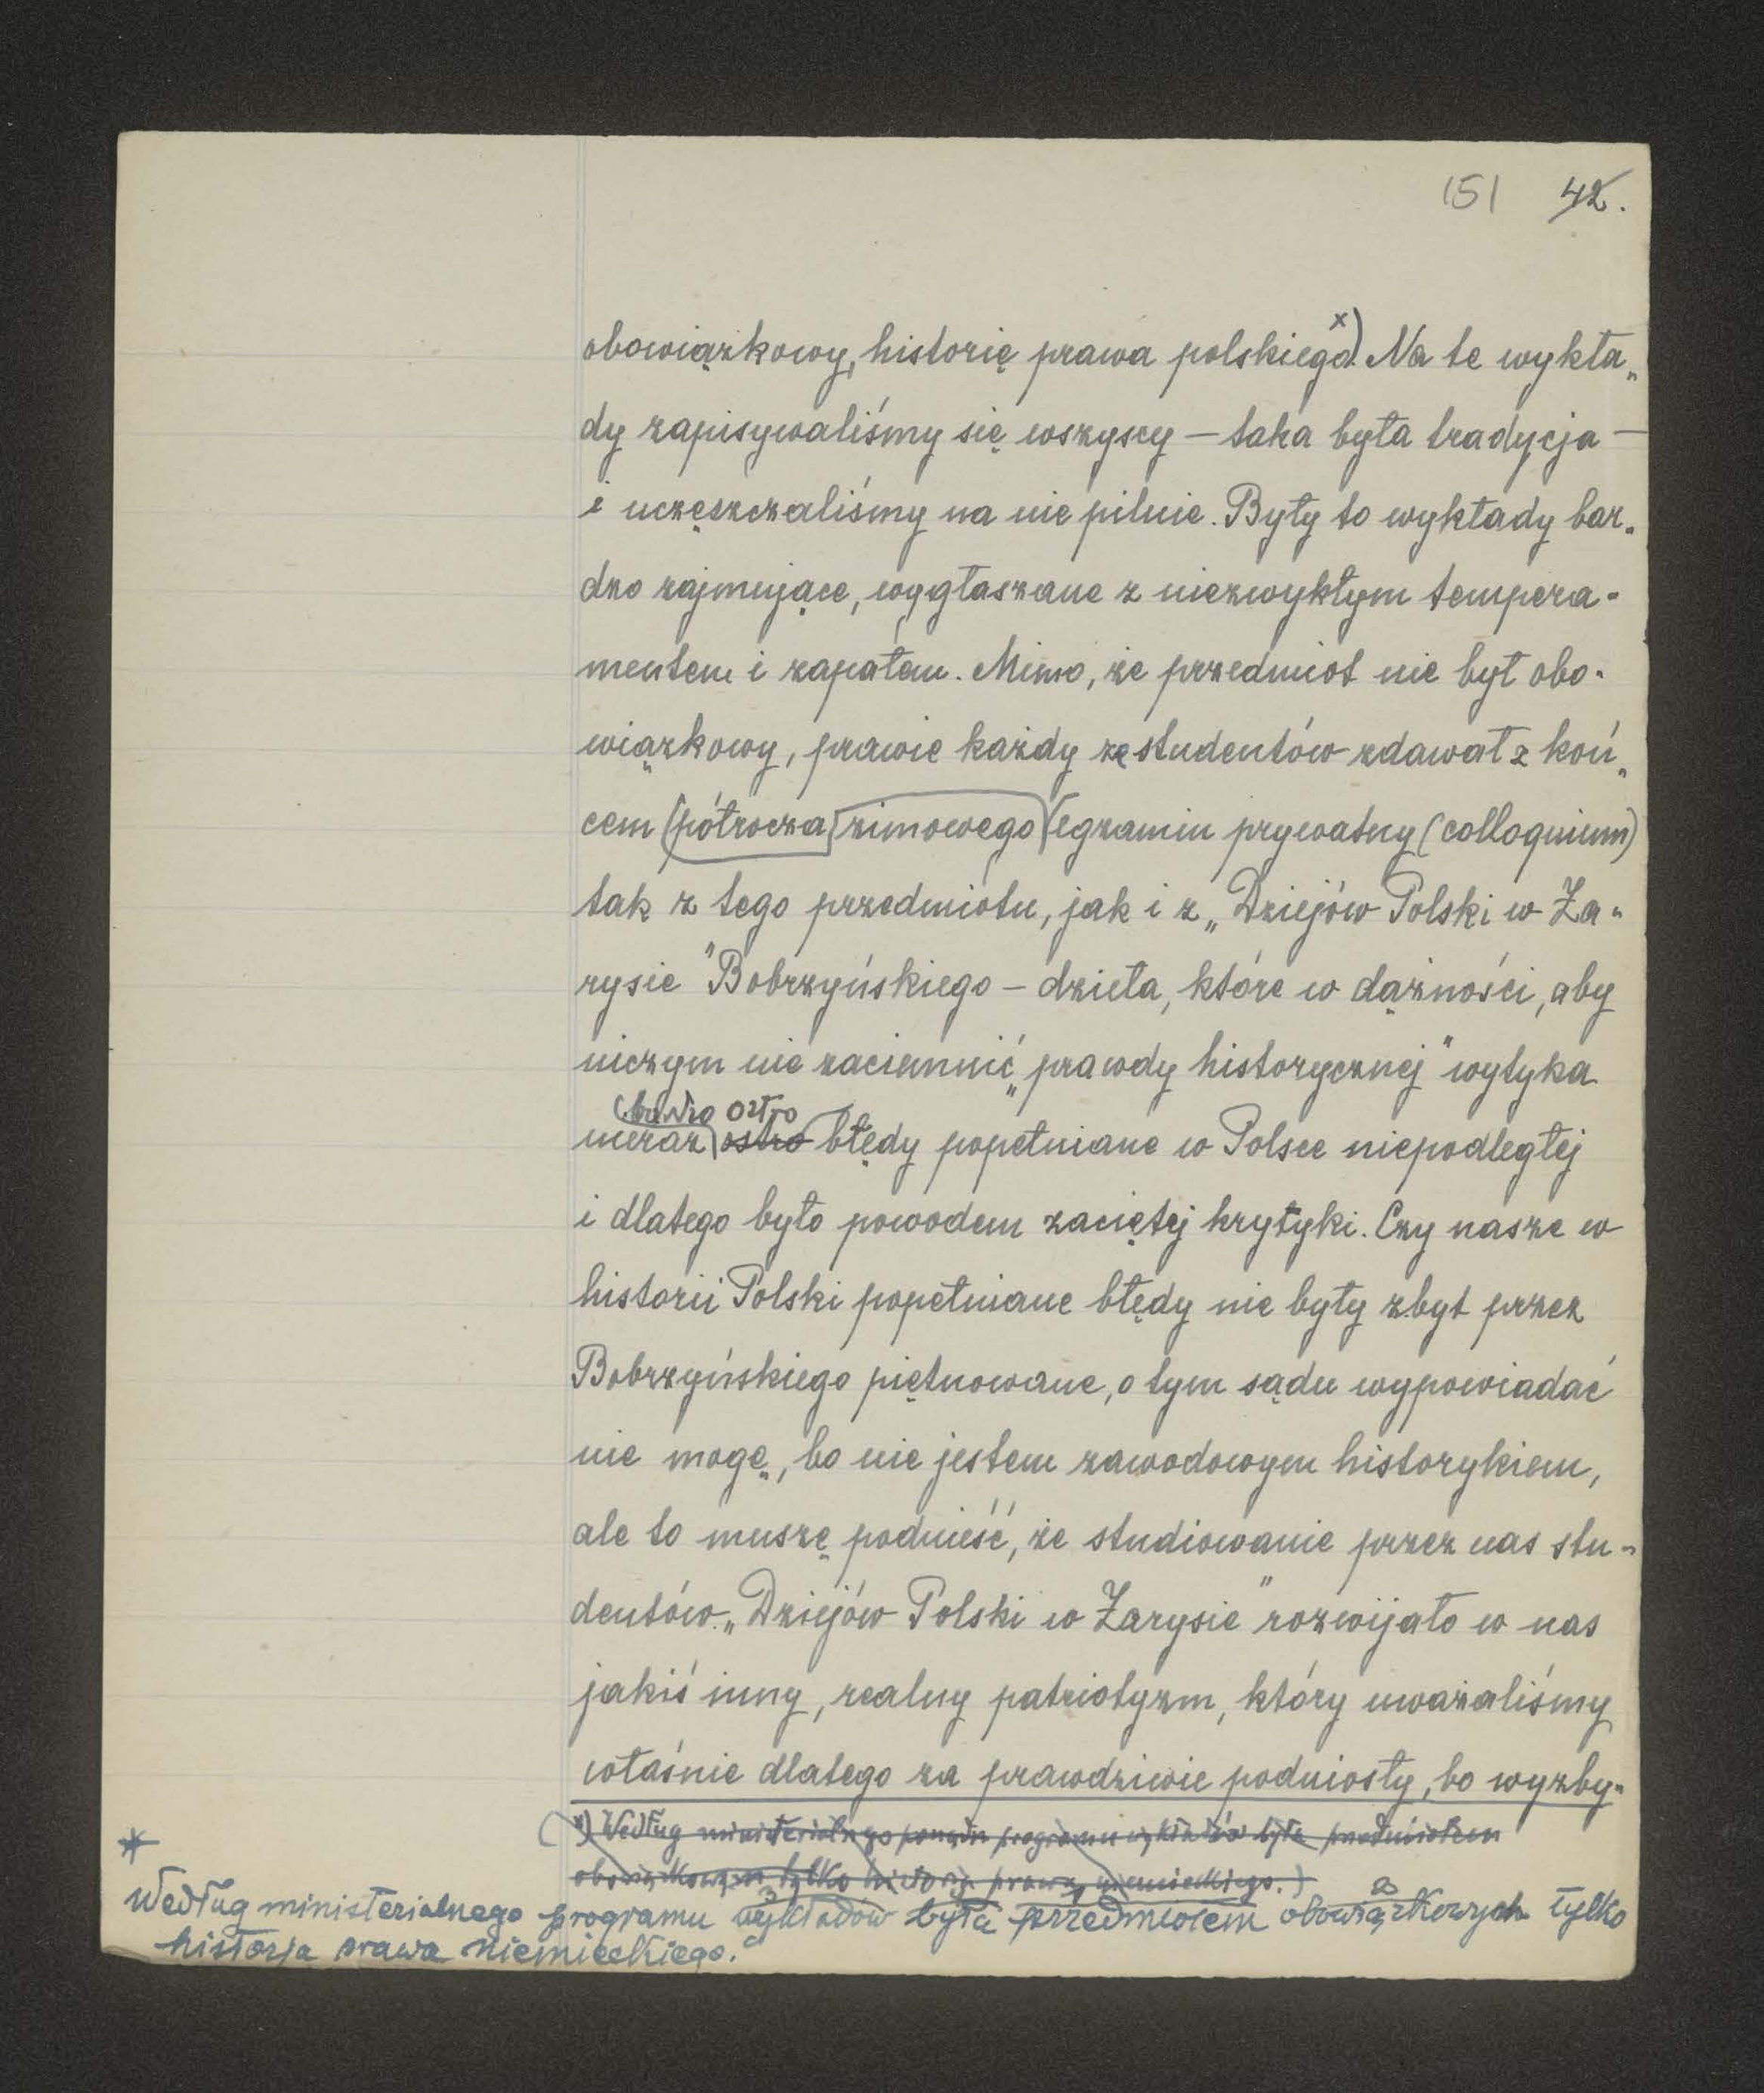 151 42.
obowiązkowy, historię prawa polskiego.x) Na te wykła„
dy zapisywaliśmy się wszyscy — taka była tradycja —
i uczęszczaliśmy na nie pilnie. Były to wykłady bar„
dzo zajmujące, wygłaszane z niezwykłym tempera-
mentem i zapałem. Mimo, że przedmiot nie był obo-
wiązkowy, prawie każdy ze studentów zdawał z koń„
cem półrocza zimowego egzamin prywatny (colloquium)
tak z tego przedmiotu, jak i z „Dziejów Polski w Za„
rysie" Bobrzyńskiego — dzieła, które w dążności, aby
niczym nie zaciemnić „prawdy historycznej" wytyka
bardzo ostro
nieraz ostro błędy popełniane w Polsce niepodległej
i dlatego było powodem zaciętej krytyki. Czy nasze w
historii Polski popełniane błędy nie były zbyt przez
Bobrzyńskiego piętnowane, o tym sądu wypowiadać
nie mogę, bo nie jestem zawodowym historykiem,
ale to muszę podnieść, że studiowanie przez nas stu-
dentów „Dziejów Polski w Zarysie" rozwijało w nas
jakiś inny, realny patriotyzm, który uważaliśmy
właśnie dlatego za prawdziwie podniosły, bo wyzby„
x) Według ministerialnego programu wykładów była przedmiotem
obowiązkowym tylko historja prawa niemieckiego.)
*
Według ministerialnego programu wykładów była przedmiotem obowiązkowych tylko
historja prawa niemieckiego.